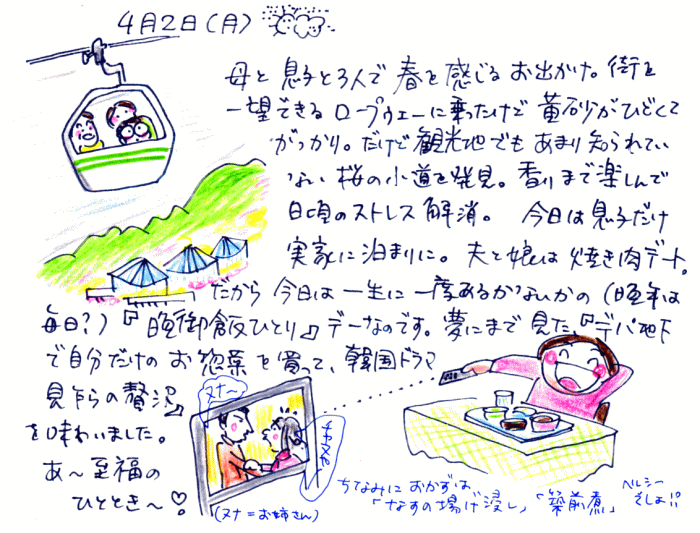 4月2日(月)
母と息子と3人で春を感じるお出かけ。街を
一望できるロープウェーに乗ったけど黄砂がひどくて
がっかり。だけど観光地でもあまり知られてい
ない桜の小道を発見。香りまで楽しんで
日頃のストレス解消。 今日は息子だけ
実家に泊まりに。夫と娘は焼き肉デート。
だから今日は一生に一度あるかないかの(晩年は
毎日?)『晩御飯ひとり』デーなのです。夢にまで見た、『デパ地下
で自分だけのお惣菜を買って、韓国ドラマ
見ながらの贅沢』
を味わいました。
あ〜至福の
ひととき〜♡!
ヌナ〜
(ヌナ=お姉さん)
ちなみにおかずは、
「なすの揚げ浸し」「築前煮」
ヘルシー
でしょ!?